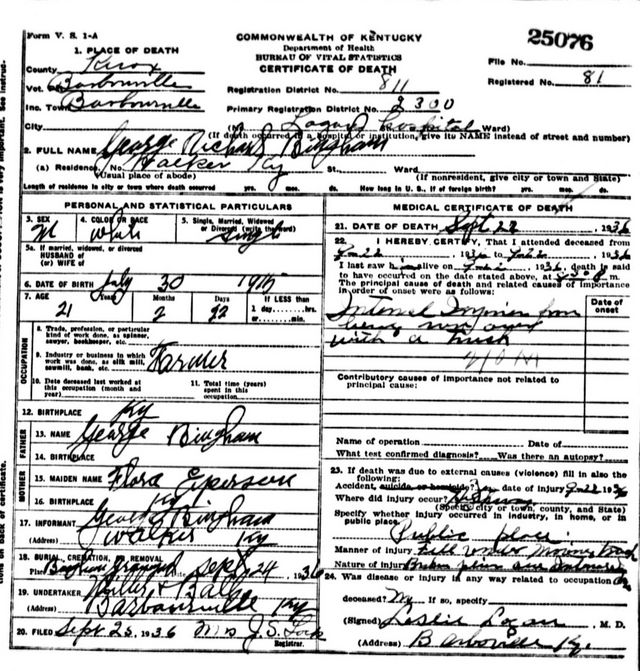 Form V. S. 1-A
COMMONWEALTH OF KENTUCKY
Department of Health
BUREAU OF VITAL STATISTICS
CERTIFICATE OF DEATH
25076
File No.
Registered No. 81
1. PLACE OF DEATH
County Knox
Vot. Barbourville
Inc. Town Barbourville
City
Registration District No. 811
Primary Registration District No. 2300
(No. Logan Hospital Ward)
(If death occurred in a hospital or institution, give its NAME instead of street and number)
2. FULL NAME George Richard Bingham
(a) Residence, No. Walker Ky St., Ward
(Usual place of abode) (If nonresident, give city or town and State)
Length of residence in city or town where death occurred yrs. mos. ds. How long in U. S., if of foreign birth? yrs. mos. ds.
PERSONAL AND STATISTICAL PARTICULARS
3. SEX M
4. COLOR OR RACE White
5. Single, Married, Widowed or Divorced (write the word) Single
5a. If married, widowed, or divorced
HUSBAND of
(or) WIFE of
6. DATE OF BIRTH July 30 1915
7. AGE Years 21 Months 2 Days 22
If LESS than
1 day, hrs.
or min.
OCCUPATION
8. Trade, profession, or particular
kind of work done, as spinner,
sawyer, bookkeeper, etc.
9. Industry or business in which
work was done, as silk mill,
sawmill, bank, etc. Farmer
10. Date deceased last worked at
this occupation (month and
year)
11. Total time (years)
spent in this
occupation
12. BIRTHPLACE Ky
FATHER
13. NAME George Bingham
14. BIRTHPLACE
MOTHER
15. MAIDEN NAME Flora Eperson
16. BIRTHPLACE Ky
17. INFORMANT George Bingham
(Address) Walker Ky
18. BURIAL, CREMATION, OR REMOVAL
Place Bingham Date Sept 24 1936
19. UNDERTAKER
(Address) Barbourville Ky
20. FILED Sept 25, 1936 Mrs J.S. Lock
Registrar.
MEDICAL CERTIFICATE OF DEATH
21. DATE OF DEATH Sept 22, 1936
22. I HEREBY CERTIFY, That I attended deceased from
9-22, 1936 to 9-22, 1936
I last saw h im alive on 9-22, 1936, death is said
to have occurred on the date stated above, at m.
The principal cause of death and related causes of importance
in order of onset were as follows:
Date of
onset
Internal Injuries from
being run over
with a truck
Contributory causes of importance not related to
principal cause:
Name of operation Date of
What test confirmed diagnosis? Was there an autopsy?
23. If death was due to external causes (violence) fill in also the
following:
Accident, suicide or homicide? yes date of injury 9-22 1936
Where did injury occur?
(Specify city or town, county, and State)
Specify whether injury occurred in industry, in home, or in
public place.
Public place
Manner of injury Fell under moving truck
Nature of injury
24. Was disease or injury in any way related to occupation of
deceased? No If so, specify
(Signed) Leslie Logan, M. D.
(Address) Barboville Ky.